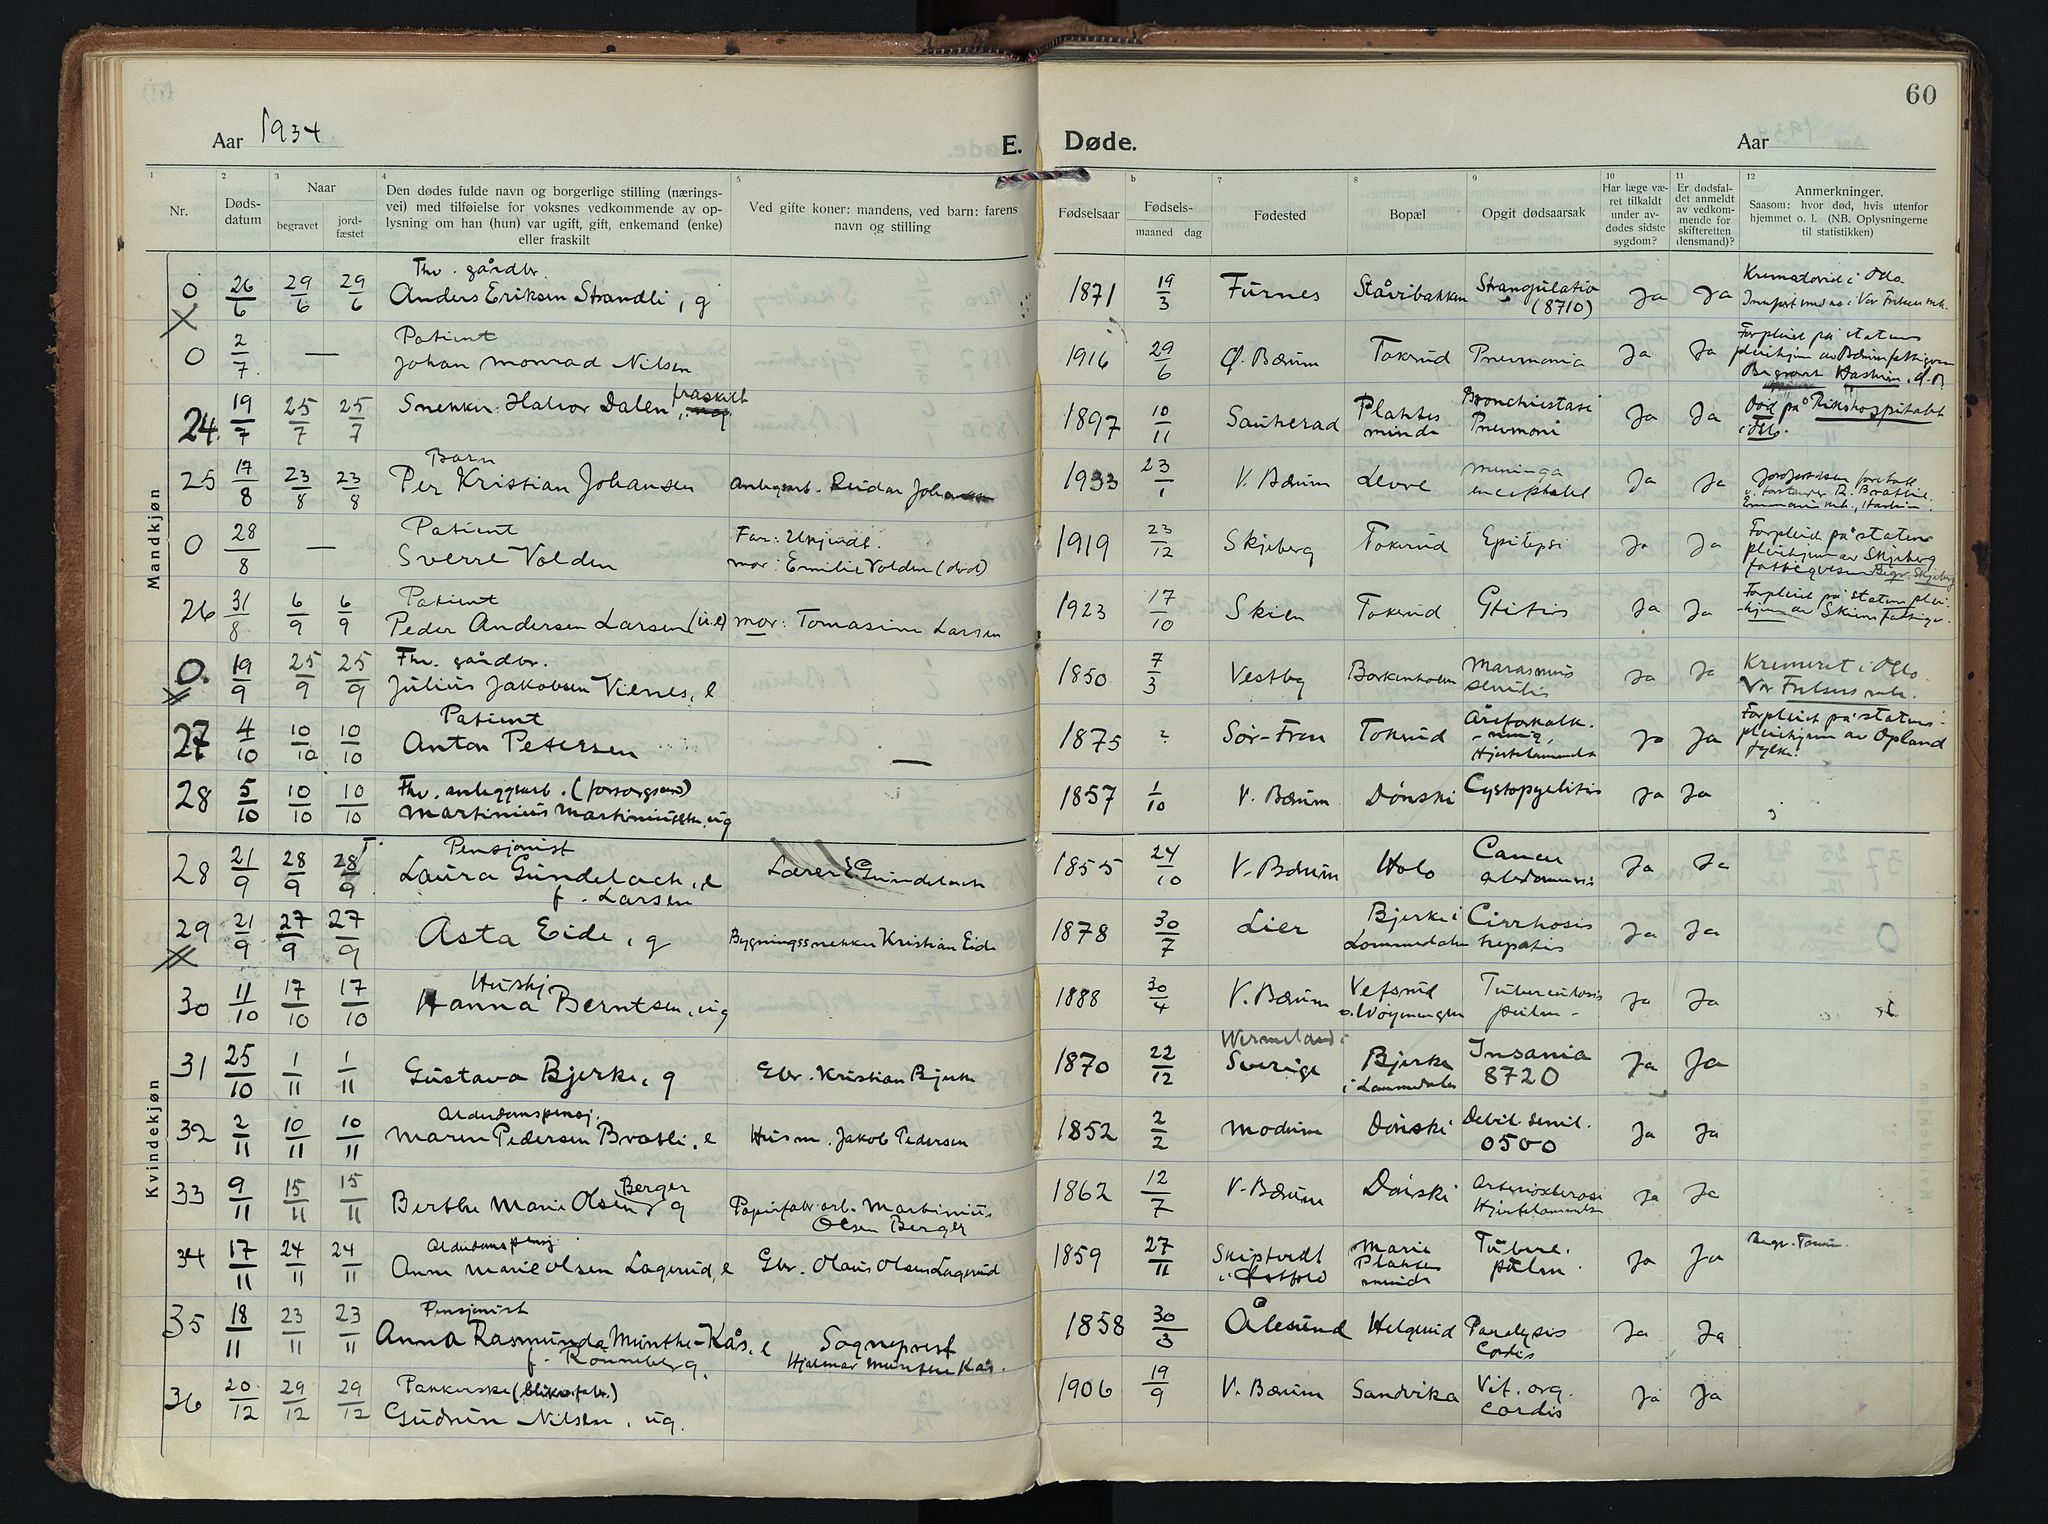 60
Aar 1934 E. Døde. Aar 1934
1 2 3 Naar 4 5 6 7 8 9 10 11 12
Nr. Dødsdatum begravet jordfæstet
Den dødes fulde navn og borgerlige stilling (næringsvei) med tilføielse for voksnes vedkommende av oplysning om han (hun) var ugift, gift, enkemand (enke) eller fraskilt
Ved gifte koner: mandens, ved barn: farens navn og stilling
Fødselsaar Fødselsmaaned dag Fødested Bopæl Opgit dødsaarsak
Har læge været tilkaldt under avdødes sidste sygdom?
Er dødsfaldet anmeldt av vedkommende for skifteretten (lensmand)?
Anmerkninger. Saasom: hvor død, hvis utenfor hjemmet o. l. (NB. Oplysningerne til statistikken)
Mandkjøn
0 26/6 29/6 29/6 Fhv. gårdbr. Anders Eriksen Strandli, g 1871 19/3 Furnes Ståvibakken Strangulatio (8710) Ja Ja i Oslo
0 2/7 — Patient Johan Monrad Nilsen 1916 29/6 Ø. Bærum Tokerud Pneumonia Ja Ja Forpleiet på statens pleiehjem av Bærum fattigvesen Begravet Haslum
24. 19/7 25/7 25/7 Snekker Halvor Dalen, fraskilt 1897 10/11 Sauherad Plahtes minde Bronchiectasi Pneumoni Ja Ja Død på Rikshospitalet i Oslo.
25 17/8 23/8 23/8 Barn Per Kristian Johansen Anlegsarb. Reidar Johansen 1933 23/1 V. Bærum Levre meninga encephalit Ja Ja
0 28/8 — Patient Sverre Volden Far: Ukjendt. mor: Emilie Volden (død) 1919 23/12 Skjeberg Tokerud Epilepsi Ja Ja Forpleiet på statens pleiehjem av Skjeberg fattigvesen Begr. Skjeberg
26 31/8 6/9 6/9 Patient Peder Andersen Larsen (u.e) mor: Tomasine Larsen 1923 17/10 Skien Tokerud Otitis Ja Ja Forpleiet på statens pleiehjem av Skiens Fattigv.
0. 19/9 25/9 25/9 Fhv. gårdbr. Julius Jakobsen Vienes, e 1850 7/3 Vestby Borkenholm Marasmus senilis Ja Ja Kremeret i Oslo. Vor Frelsers
27 4/10 10/10 10/10 Patient Anton Petersen — 1875 ? Sør-Fron Tokerud Åreforkalkning, Hjertelammelse Ja Ja Forpleiet på statens pleiehjem av Opland fylke.
28 5/10 10/10 10/10 Fhv. anleggsarb. (forsorgsund) Martinius Martiniussen, ug 1857 1/10 V. Bærum Dønski Cystopyelitis Ja Ja
Kvindekjøn
28 21/9 28/9 28/9 Pensjonist Laura Gundelach, e f. Larsen Lærer E. Gundelach 1855 24/10 V. Bærum Holo Cancer abdominis Ja Ja
29 21/9 27/9 27/9 Asta Eide, g Bygningssnekker Kristian Eide 1878 30/7 Lier Bjerke i Lommedalen Cirrhosis hepatis Ja Ja
30 11/10 17/10 17/10 Hushj Hanna Berntsen, ug 1888 30/4 V. Bærum Tuberculosis pulm. Ja Ja
31 25/10 1/11 1/11 Gustava Bjerke, g Gbr. Kristian Bjerke 1870 22/12 Wermeland i Sverige Bjerke i Lommedalen Insania 8720 Ja Ja
32 2/11 10/11 10/11 Alderdomspensj. Maren Pedersen Bratli, e Husm. Jakob Pedersen 1852 2/2 Modum Dønski Debil. senil. 0500 Ja Ja
33 9/11 15/11 15/11 Berthe Marie Olsen Berger g Papirfabr.arb. Martinius Olsen Berger 1862 12/7 V. Bærum Dønski Arteriosklerose Hjertelammelse Ja Ja
34 17/11 24/11 24/11 Alderdomspensj. Anne Marie Olsen Lagerud, e Gbr. Olaus Olsen Lagerud 1859 27/11 Skiptvedt i Østfold Marie Plahtes minde Tuberc. pulm. Ja Ja Begr. Tanum
35 18/11 23/11 23/11 Pensjonist Anna Rasmunda Munthe-Kås, e f. Rønneberg. Sogneprest Hjalmar Munthe Kås. 1858 30/3 Ålesund Helgerud Paralysis Cordis Ja Ja
36 20/12 29/12 29/12 Pakkerske (blikvfabr.) Gudrun Nilsen, ug. 1906 19/9 V. Bærum Sandvika Vit. org. cordis Ja Ja